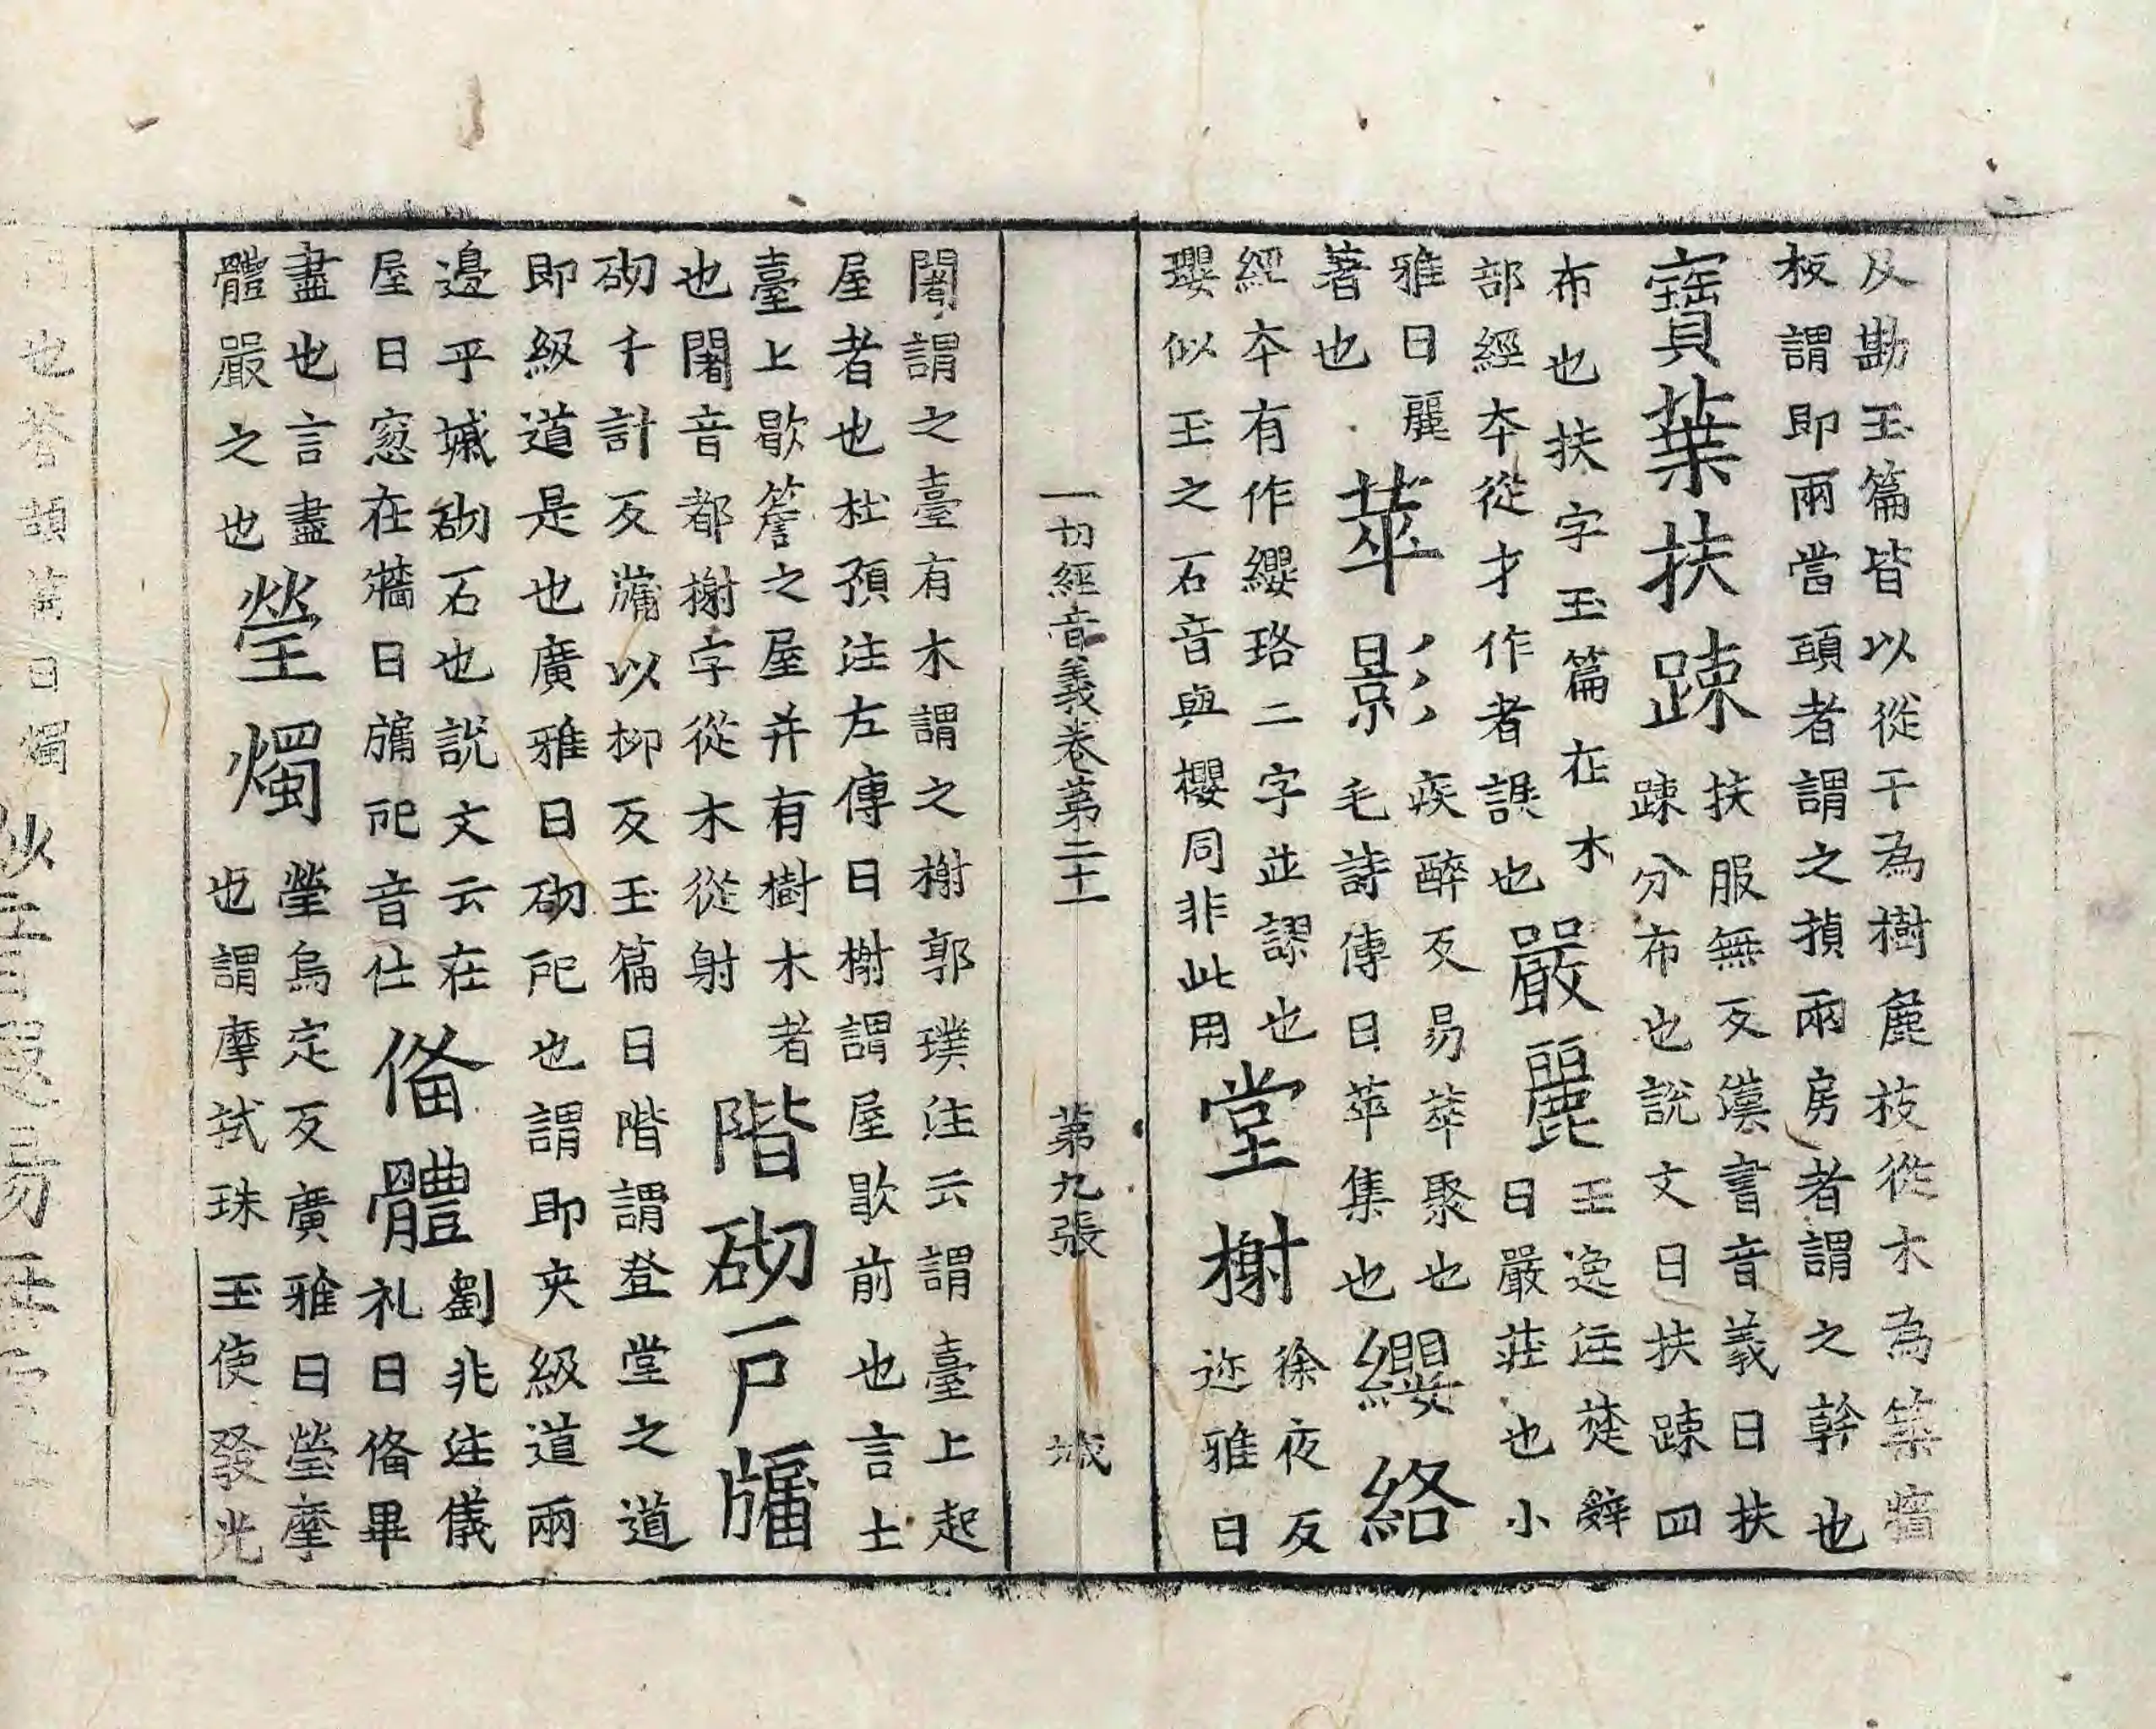 反勘玉篇皆以從干為樹麁枝從木為築牆
板謂即兩當頭者謂之楨兩房者謂之幹也
寶葉扶踈
扶服無反漢書音義曰扶
踈分布也說文曰扶踈四
布也扶字玉篇在木
部經夲從才作者誤也
嚴麗
王逸注楚辭
曰嚴莊也小
雅曰麗
著也
萃影
疾醉反易萃聚也
毛詩傳曰萃集也
纓絡
經夲有作纓珞二字並謬也
瓔似玉之石音與櫻同非此用
堂榭
徐夜反
迩雅曰
一切經音義卷第二十一 第九張 城
闍謂之臺有木謂之榭郭璞注云謂臺上起
屋者也杜預注左傳曰榭謂屋歇前也言士
臺上歇簷之屋并有樹木者
也闍音都榭字從木從射
階砌戶牖
砌千計反牖以柳反玉篇曰階謂登堂之道
即級道是也廣雅曰砌戺也謂即夾級道兩
邊平墄砌石也說文云在
屋曰窓在牆曰牖戺音仕
俻體
劉兆注儀
礼曰俻畢
盡也言盡
體嚴之也
瑩燭
瑩烏定反廣雅曰瑩摩
也謂摩拭珠玉使發光
也蒼頡篇曰燭